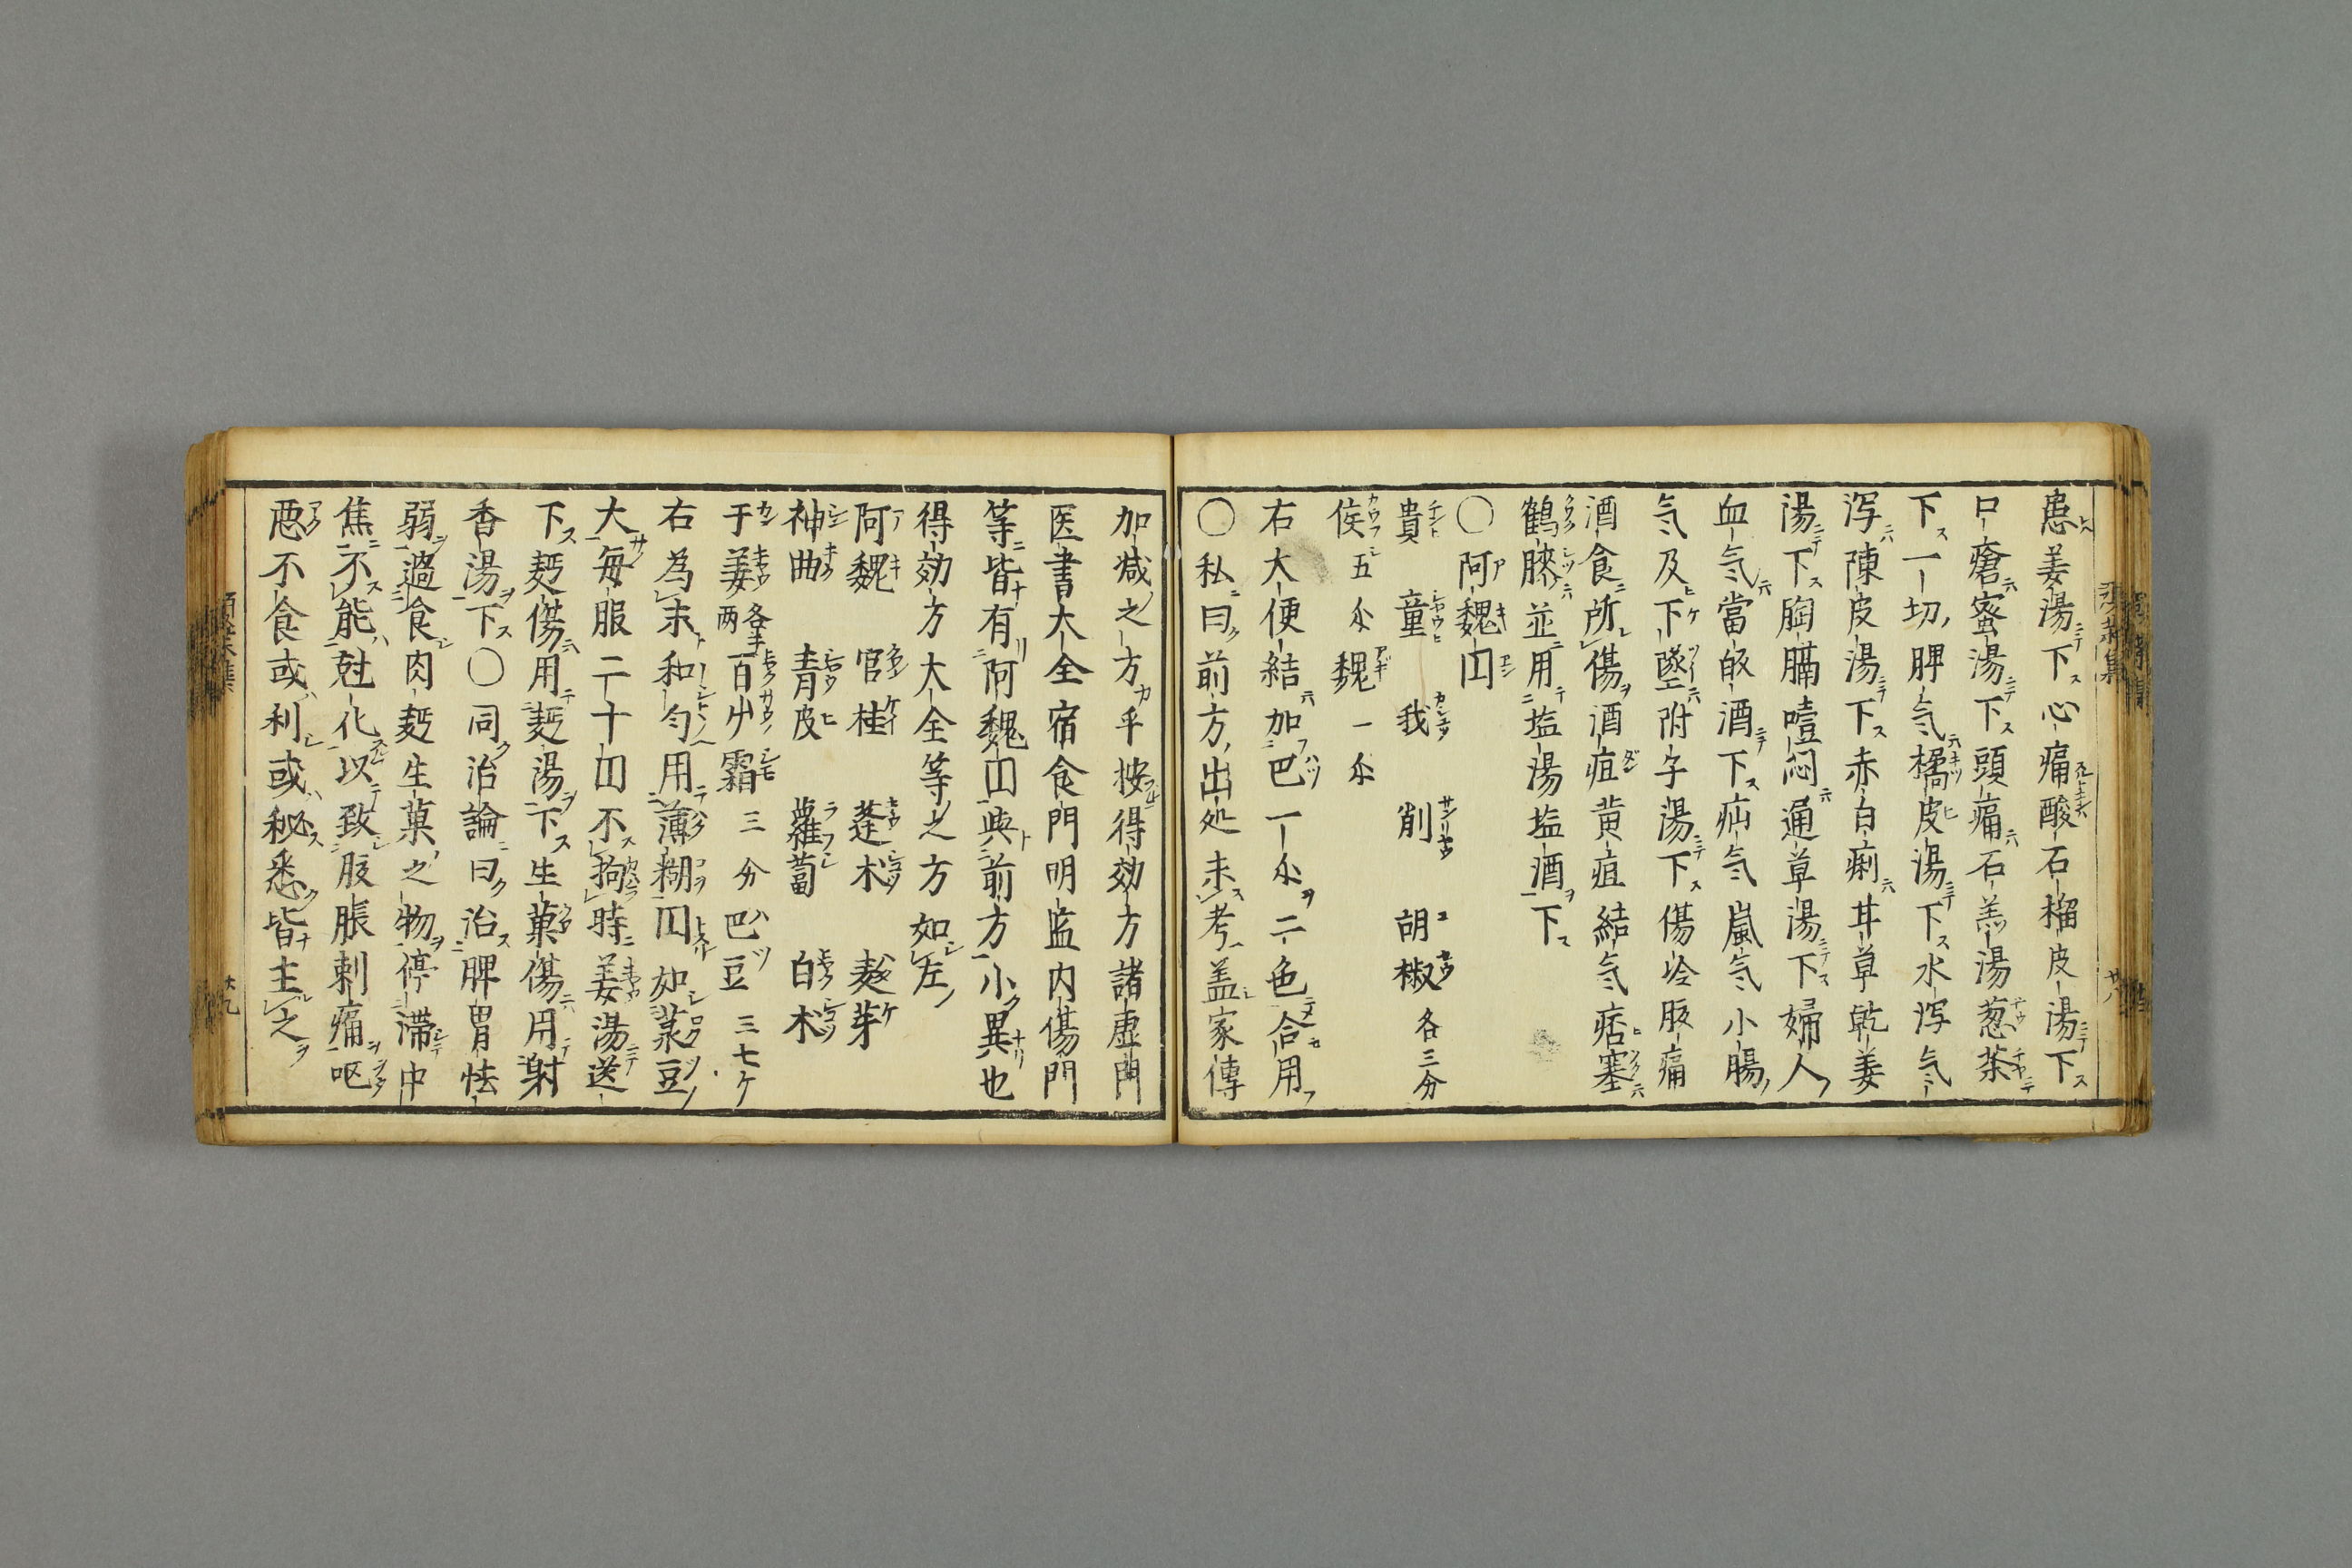 恚姜湯下心痛酸石榴皮湯下
口瘡蜜湯下頭痛石羔湯葱茶
下一切脾气橘皮湯下水泻气
泻陳皮湯下赤白痢甘草乾姜
湯下胸膈噎悶通草湯下婦人
血气當皈酒下疝气嵐气小腸
气及下墜附子湯下傷冷腹痛
酒食所傷酒疸黄疸結气痞塞
鶴膝並用塩湯塩酒下
〇阿魏円
貴 童 我 削 胡椒各三分
侯五分 魏一分
右大便結加巴一分二色合用
〇私曰前方出処未考盖家傳
加减之方乎按得効方諸虚門
医書大全宿食門明监内傷門
等皆有阿魏円與前方小異也
得効方大全等之方如左
阿魏 官桂 蓬朮 麺芽
神曲 青皮 蘿蔔 白朮
干姜各半两 百艸霜三分 巴豆三七ケ
右為末和匀用薄糊円如菉豆
大每服二十円不拘時姜湯送
下麪傷用麪湯下生菓傷用射
香湯下〇同治論曰治脾胃怯
弱過食肉麪生菓之物停滞中
焦不能尅化以致腹脹刺痛呕
恶不食或利或秘悉皆主之